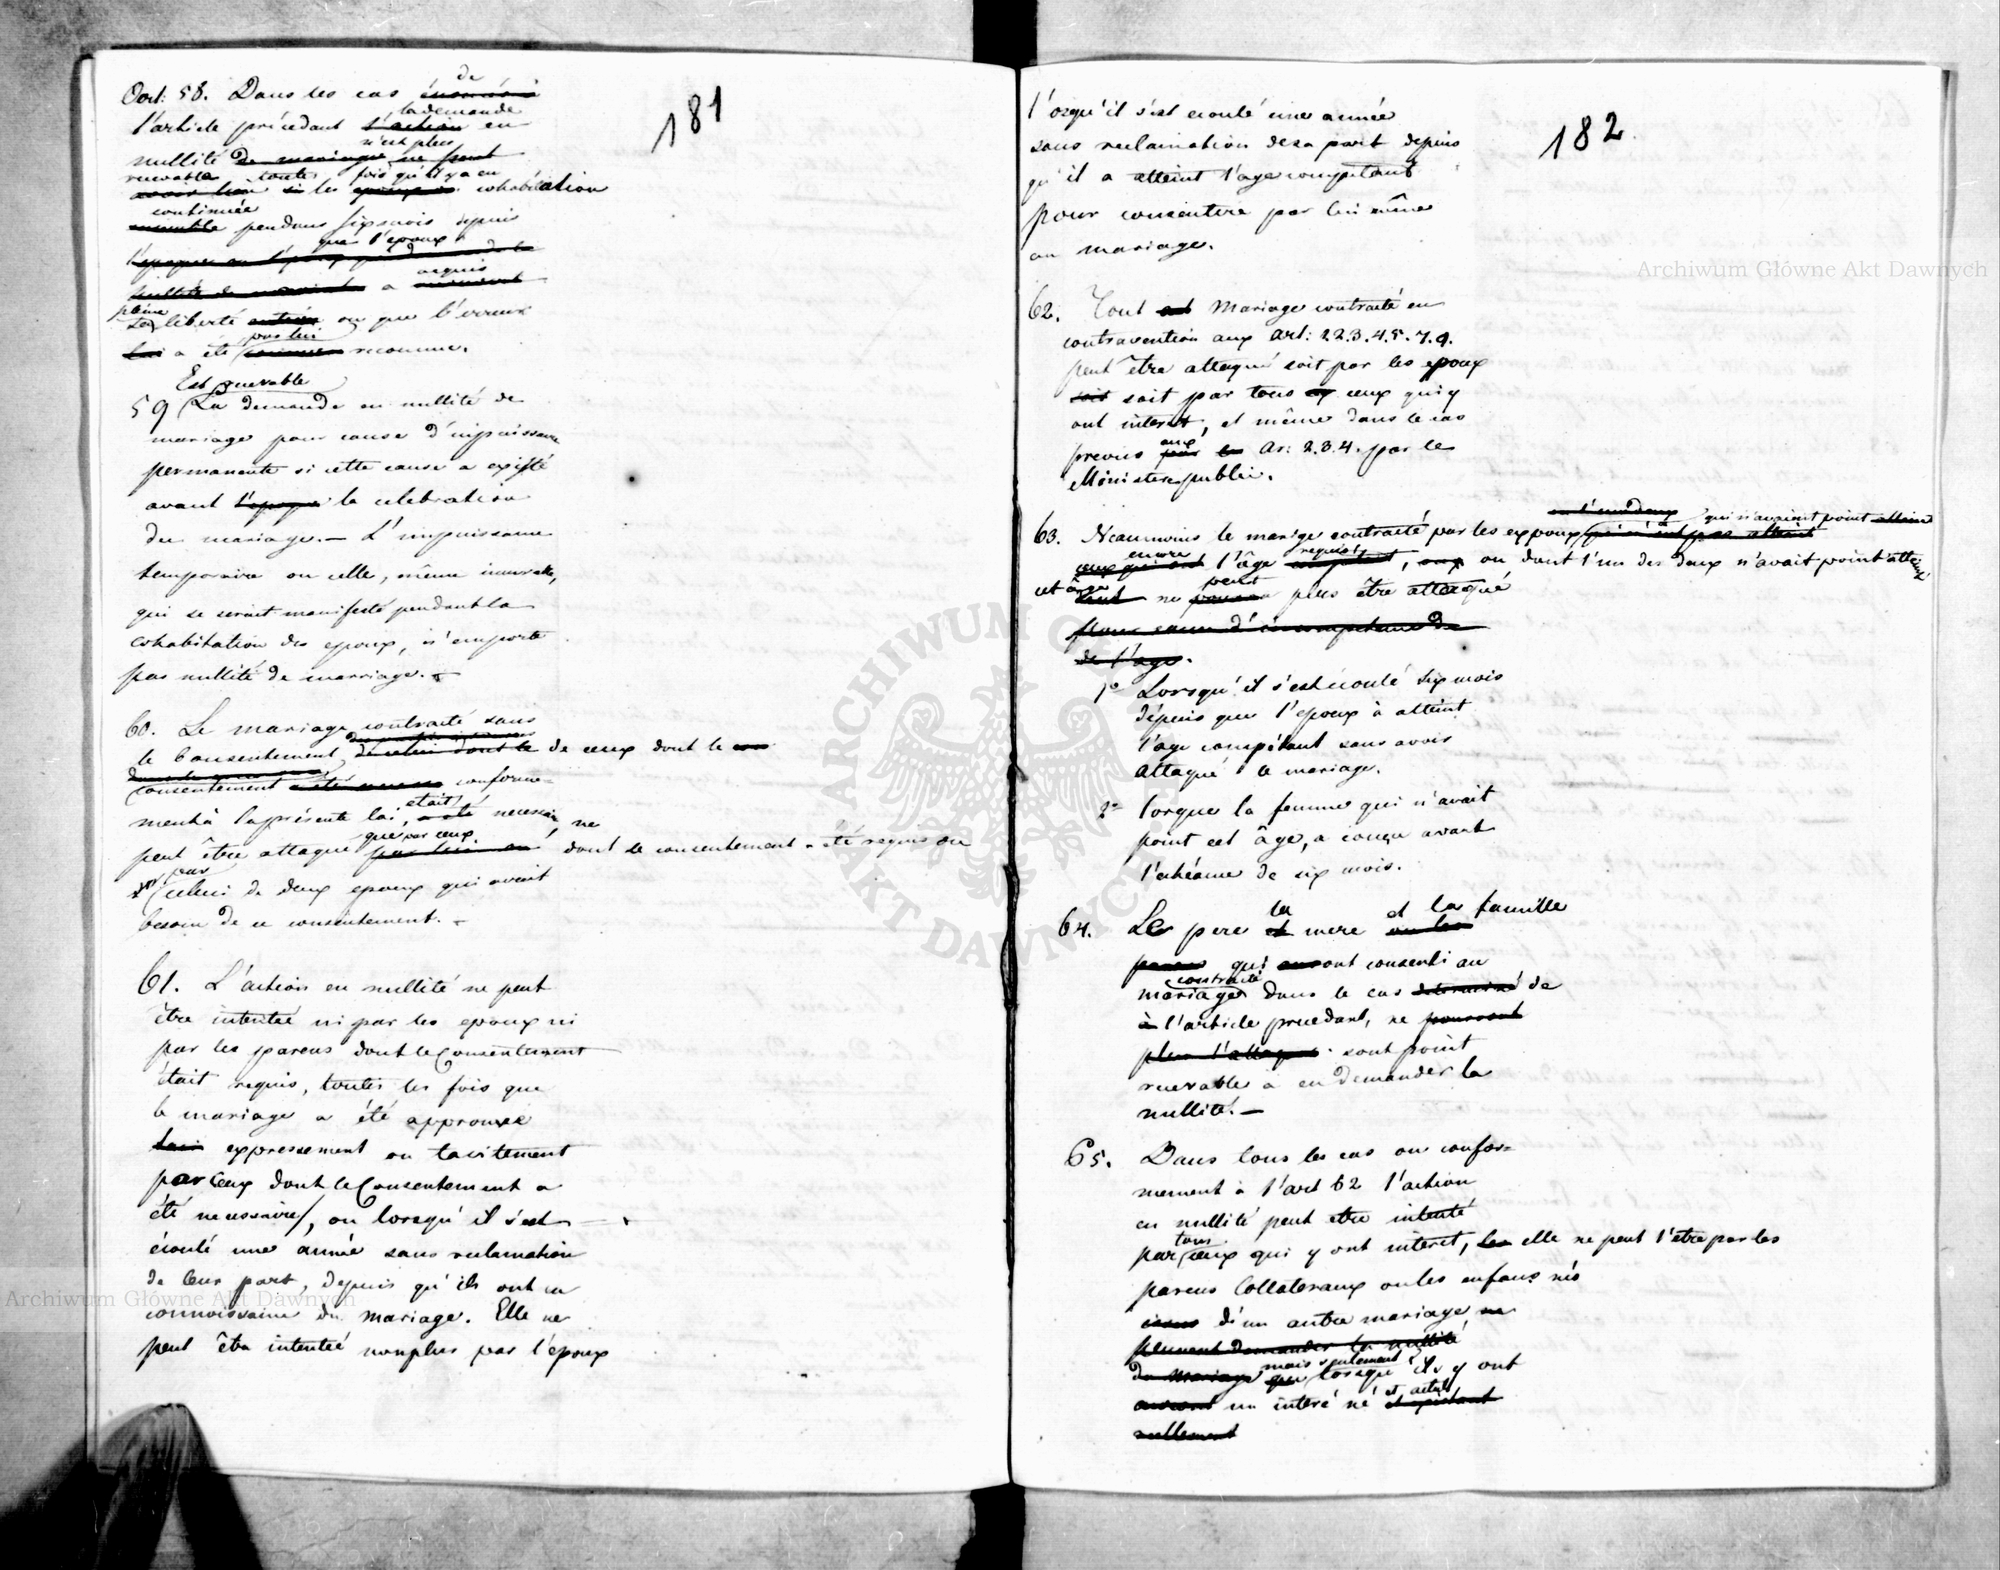 181
Art: 58. Dans les cas de
l'article précédant la demande en
nullité n'est plus
recevable toutes fois qu'il y a eu cohabitation
continuée pendans six mois depuis
que l'epoux
a acquis
pleine liberté ou que l'erreur
a été par lui reconnue.
Est recevable
59 La demande en nullité de
mariage pour cause d'impuissance
permanente si cette cause a existé
avant la celebration
du mariage. — L'impuissance
temporaire ou celle, même incurable,
qui se serait manifesté pendant la
cohabitation des epoux, n'emporte
pas nullité de marriage.
60. Le mariage contraité sans
le Consentement de ceux dont le
consentement conforme=
ment à la présente loi, etait necessaire, ne
peut être attaqué que par ceux dont le consentement a été requis ou
par celui de deux epoux qui avait
besoin de ce consentement. —
61. L'action en nullité ne peut
être intentée ni par les epoux ni
par les parens dont le Consentement
était requis, toutes les fois que
le mariage a été approuvée
expressement ou tacitement
par Ceux dont le Consentement a
été necessaire, ou lorsqu'il s'est
écoulé une année sans reclamation
de leur part, depuis qu'ils ont eu
connoissance du mariage. Elle ne
peut être intentée nonplus par l'époux
182
l'orsqu'il s'est ecoulé une année
sans reclamation de sa part depuis
qu'il a atteint l'age compétant
pour consentire par lui même
au mariage.
62. Tout Mariage contraité en
contravention aux Art: 1.2.3.4.5.7.9.
peut être attaqué soit par les epoux
soit par tous ceux qui y
ont interet, et même dans le cas
prevus aux Ar: 2.3.4. par le
Ministere public.
63. Neanmoins le mariage contraité par les expoux qui n'avaient point
encore l'âge requis, ou dont l'un des deux n'avait point atteint
cet âge ne peut plus être attaqué
1º Lorsqu'il s'est écoulé six mois
dépuis que l'epoux à atteint
l'age compétant sans avoir
attaqué le mariage.
2º lorsque la femme qui n'avait
point cet âge, a conçu avant
l'echéance de six mois.
64. Le pere la mere et la famille
qui ont consenti au
mariage contraité dans le cas de
l'article precedant, ne
sont point
recevable à en demander la
nullité. —
65. Dans tous les cas ou confor=
mement à l'art 62 l'action
en nullité peut etre intenté
par tous ceux qui y ont interet, elle ne peut l'être par les
parens Collateraux ou les enfans nés
d'un autre mariage
mais seulement lorsque ils y ont
un interé né et actuel
Archiwum Główne Akt Dawnych
Archiwum Główne Akt Dawnych
ARCHIWUM GŁÓWNE AKT DAWNYCH